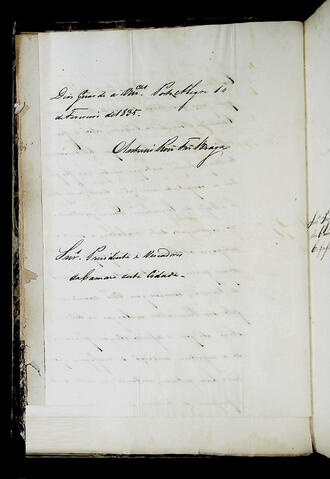 Deos Guarde a Vmces. Porto Alegre 10
de Fevereiro de 1835.
Antonio Roiz Frz Braga
Snrs. Presidente e Vereadores
da Camara desta Cidade.